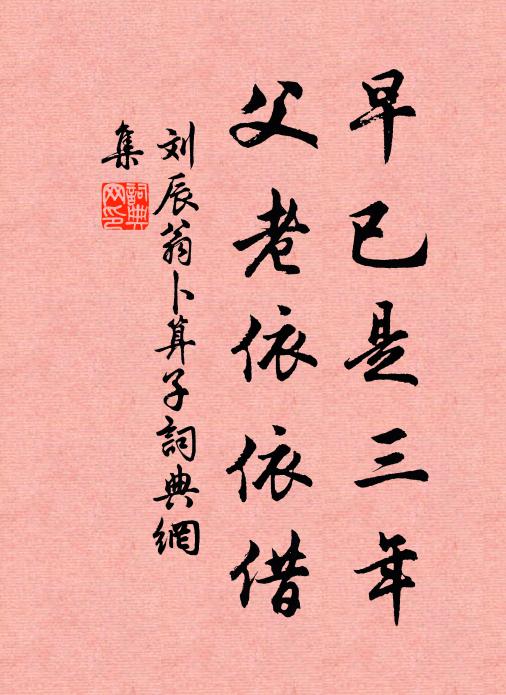 早已是三年
父老依依借
刘辰翁卜算子詞典網
集
詞典
网印